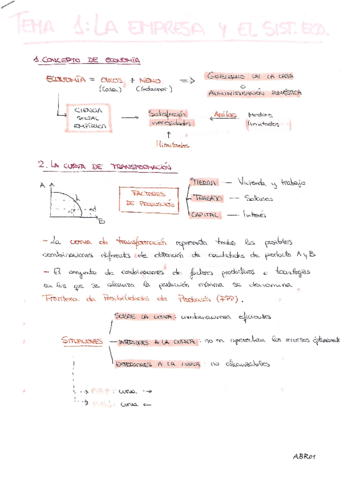 TEMA 1: LA EMPRESA Y EL SIST. ECO.
1. CONCEPTO DE ECONOMÍA
ECONOMÍA = OIKOS + NEMO => GOBIERNO DE LA CASA
(Casa) (Gobernar) o ADMINISTRACIÓN DOMÉSTICA
CIENCIA SOCIAL EMPÍRICA
Satisfacción necesidades
Medios limitados
Ilimitadas
2. LA CURVA DE TRANSFORMACIÓN
A
B
FACTORES DE PRODUCCIÓN
TIERRA — Vivienda y trabajo
TRABAJO — Salarios
CAPITAL — Interés
- La curva de transformación representa todas las posibles
combinaciones obtención de cantidades de producto A y B
- El conjunto de combinaciones de factores productivos o tecnologías
en las que se alcanza la producción máxima se denomina
Frontera de Posibilidades de Producción (FPP).
SITUACIONES
SOBRE LA CURVA: combinaciones eficientes
INTERIORES A LA CURVA: no se aprovechan los recursos
EXTERIORES A LA CURVA: no
curva →
curva ←
ABR01